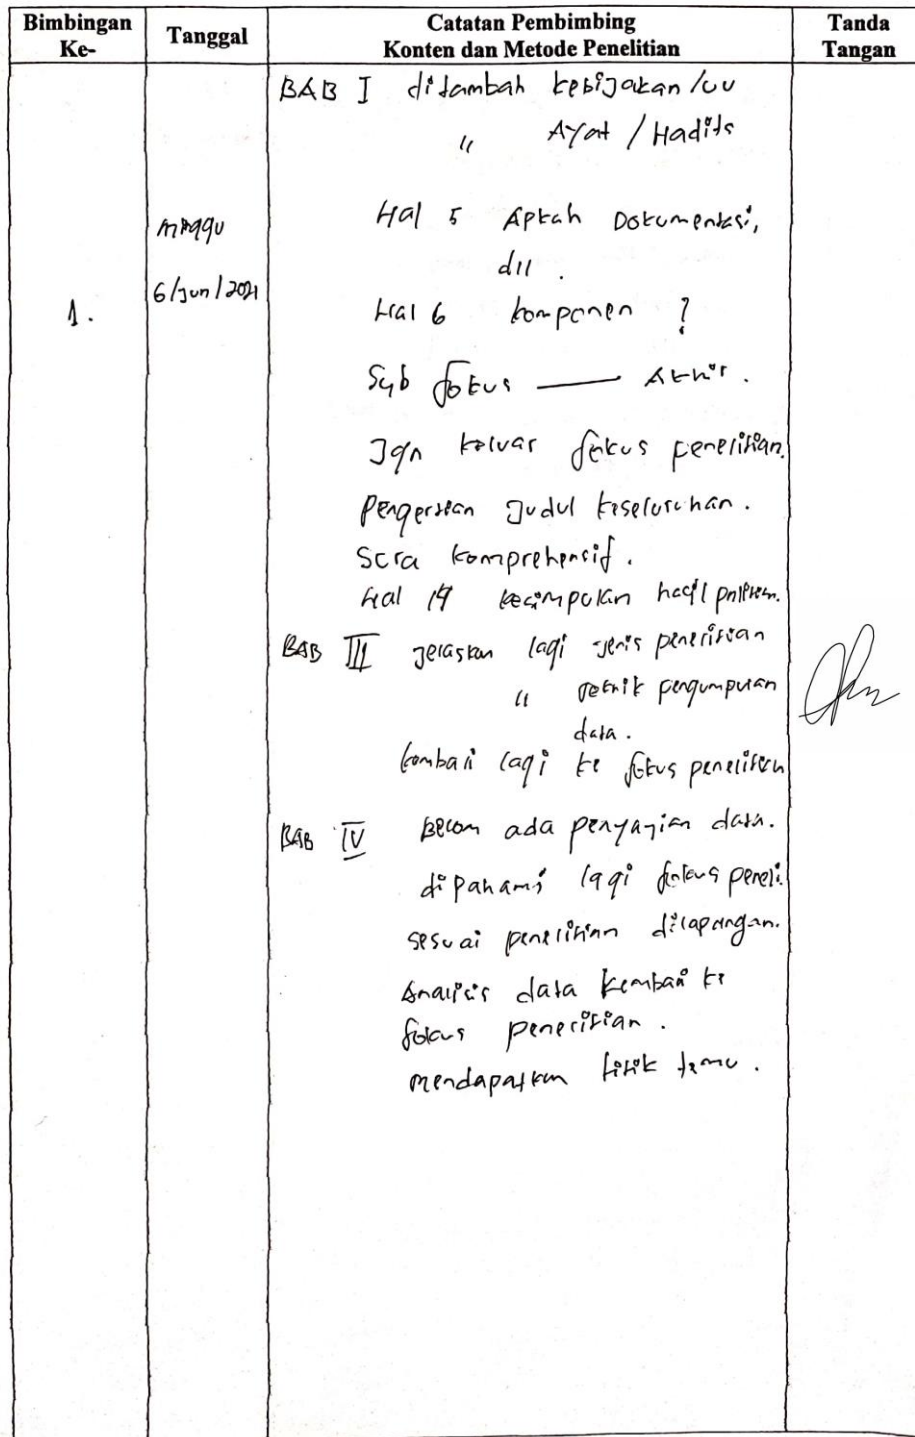 Bimbingan Ke-
Tanggal
Catatan Pembimbing
Konten dan Metode Penelitian
Tanda Tangan
1.
Minggu
6/Jun/2021
BAB I ditambah kebijakan/UU
" Ayat / Hadits
Hal 5 Apkah Dokumentasi,
dll.
Hal 6 komponen ?
Sub fokus — Akhir.
Jgn keluar fokus penelitian.
Pengertian Judul keseluruhan.
Scra komprehensif.
Hal 19 kesimpulan hasil
BAB III Jelaskan lagi jenis penelitian
" teknik pengumpulan
data.
kembali lagi ke fokus penelitian
BAB IV Belum ada penyajian data.
dipahami lagi fokus peneli.
sesuai penelitian dilapangan.
Analisis data kembali ke
fokus penelitian.
mendapatkan titik temu.